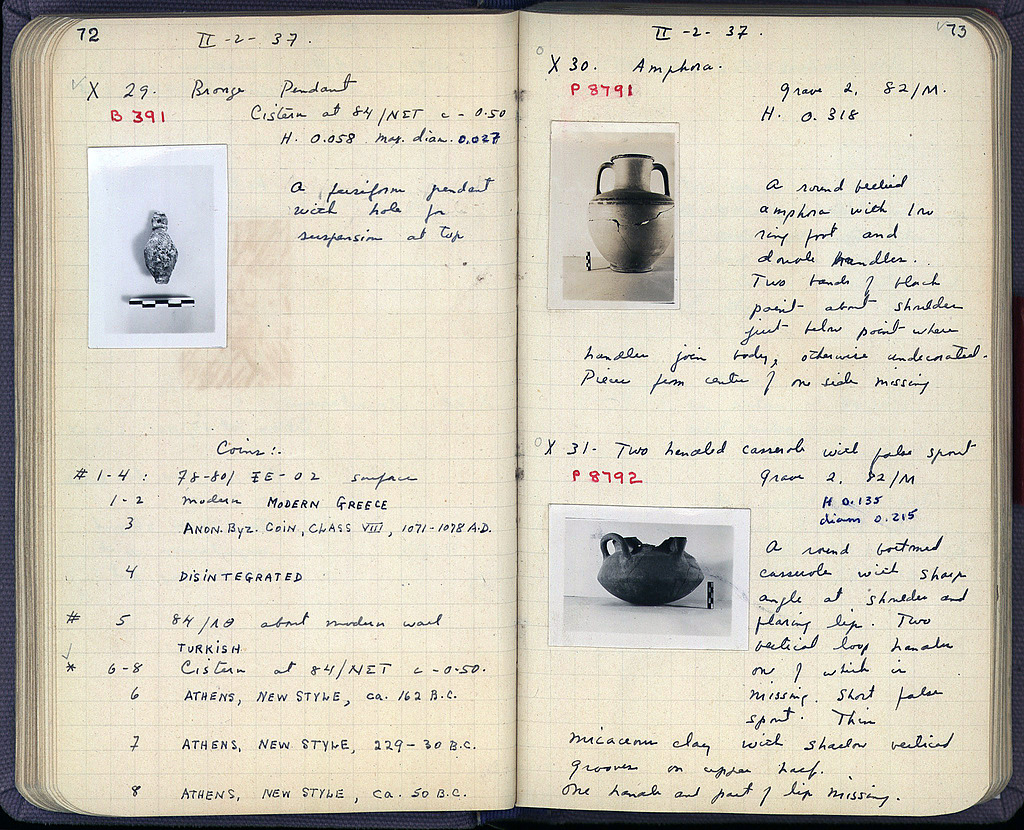 72
II - 2 - 37.
X 29. Bronze Pendant
B 391 Cistern at 84/NET c - 0.50
H. 0.058 max. diam. 0.027
A fusiform pendant
with hole for
suspension at top
Coins:-
# 1-4 : 78-80/ IE-02 surface
1-2 modern MODERN GREECE
3 ANON. BYZ. COIN, CLASS VIII, 1071-1078 A.D.
4 DISINTEGRATED
# 5 84/ΛΘ about modern wall
TURKISH
* 6-8 Cistern at 84/NET c-0.50.
6 ATHENS, NEW STYLE, ca. 162 B.C.
7 ATHENS, NEW STYLE, 229-30 B.C.
8 ATHENS, NEW STYLE, ca. 50 B.C.
73
II - 2 - 37.
X 30. Amphora.
P 8791 Grave 2, 82/M.
H. 0.318
A round bellied
amphora with low
ring foot and
double handles.
Two bands of black
paint about shoulder
just below point where
handles join body, otherwise undecorated.
Piece from centre of one side missing
X 31- Two handled casserole with false spout
P 8792 Grave 2, 82/M
H 0.135
diam 0.215
A round bottomed
casserole with sharp
angle at shoulder and
flaring lip. Two
vertical loop handles
one of which is
missing. Short false
spout. Thin
micaceous clay with shallow vertical
grooves on upper half.
One handle and part of lip missing.